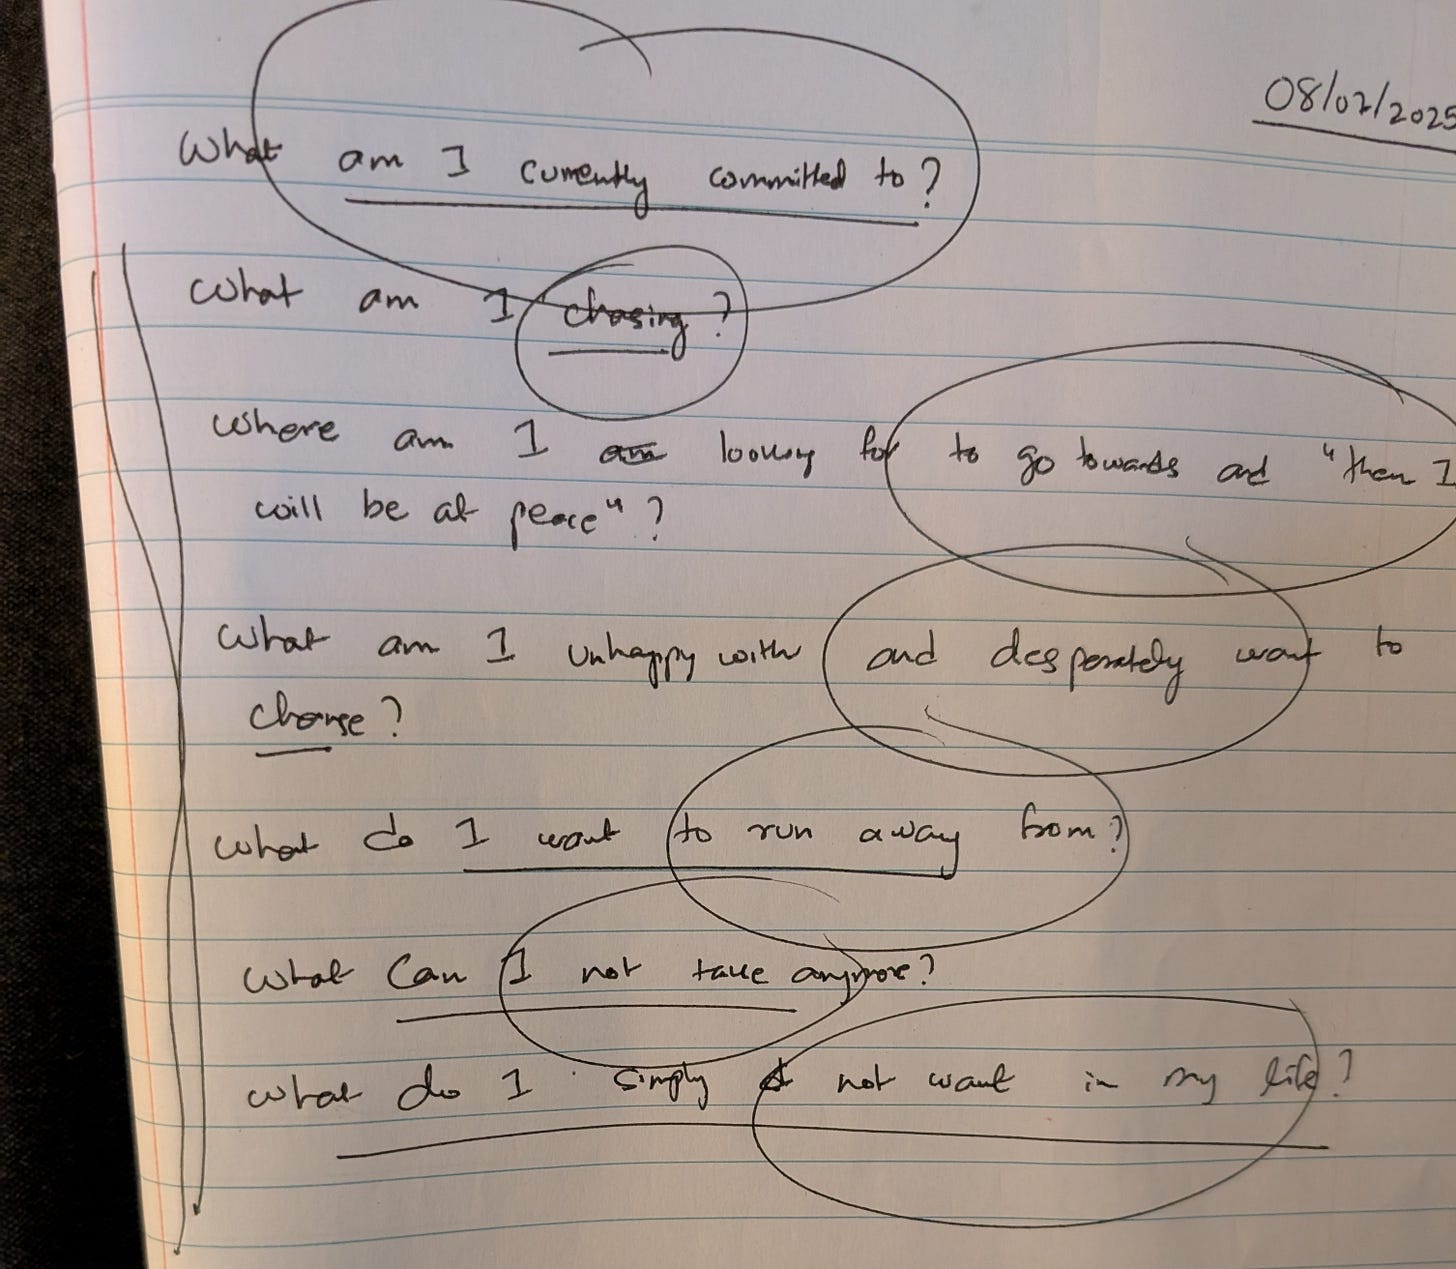 08/02/2025
What am I currently committed to?
What am I chasing?
Where am I am looking for to go towards and "then I
will be at peace"?
What am I unhappy with and desperately want to
change?
What do I want to run away from?
What can I not take anymore?
What do I simply not want in my life?